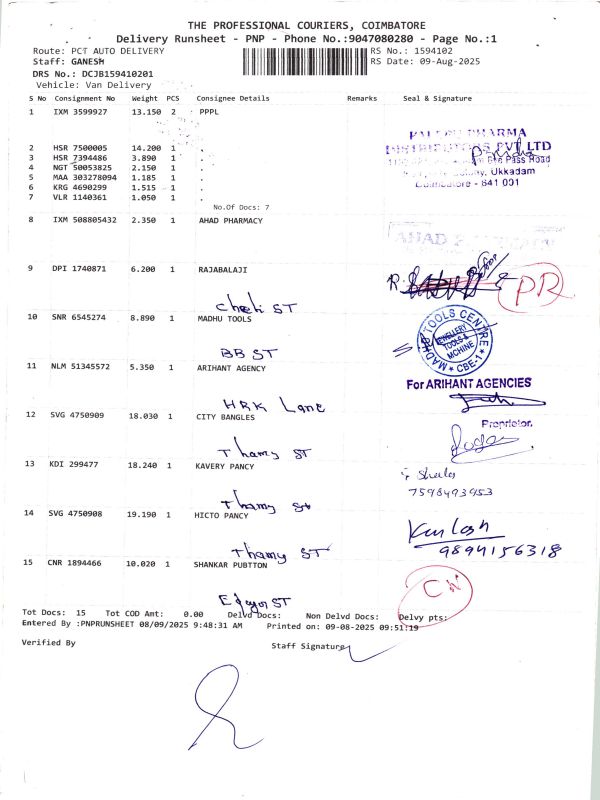 THE PROFESSIONAL COURIERS, COIMBATORE
Delivery Runsheet - PNP - Phone No.:9047080280 - Page No.:1
Route: PCT AUTO DELIVERY RS No.: 1594102
Staff: GANESH RS Date: 09-Aug-2025
DRS No.: DCJB159410201
Vehicle: Van Delivery
S No Consignment No Weight PCS Consignee Details Remarks Seal & Signature
1 IXM 3599927 13.150 2 PPPL
PHARMA
PVT LTD
2 HSR 7500005 14.200 1 .
3 HSR 7394486 3.890 1 .
Pass Road
4 NGT 50053825 2.150 1 .
5 MAA 303278094 1.185 1 .
Ukkadam
6 KRG 4690299 1.515 1 .
Coimbatore - 641 001
7 VLR 1140361 1.050 1 .
No.Of Docs: 7
8 IXM 508805432 2.350 1 AHAD PHARMACY
AHAD
9 DPI 1740871 6.200 1 RAJABALAJI
PR
ST
10 SNR 6545274 8.890 1 MADHU TOOLS
MADHU TOOLS CENTRE
JEWELLERY
TOOLS &
MCHINE
CBE-1
BB ST
11 NLM 51345572 5.350 1 ARIHANT AGENCY
For ARIHANT AGENCIES
HRK Lane
12 SVG 4750909 18.030 1 CITY BANGLES
Proprietor.
Thamy ST
13 KDI 299477 18.240 1 KAVERY PANCY
7598493953
Thamy St
14 SVG 4750908 19.190 1 HICTO PANCY
9894156318
Thamy ST
15 CNR 1894466 10.020 1 SHANKAR PUBTTON
CW
ST
Tot Docs: 15 Tot COD Amt: 0.00 Delvd Docs: Non Delvd Docs: Delvy pts:
Entered By :PNPRUNSHEET 08/09/2025 9:48:31 AM Printed on: 09-08-2025 09:51:19
Verified By Staff Signature